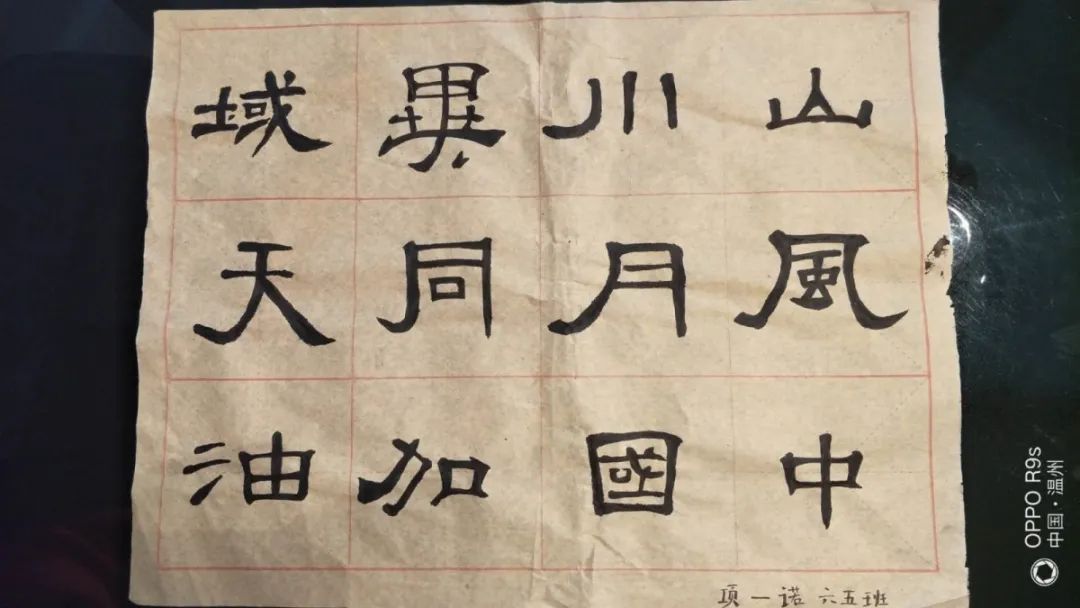 山川異域
風月同天
中國加油
项一诺 六五班
OPPO R9s
中国·温州